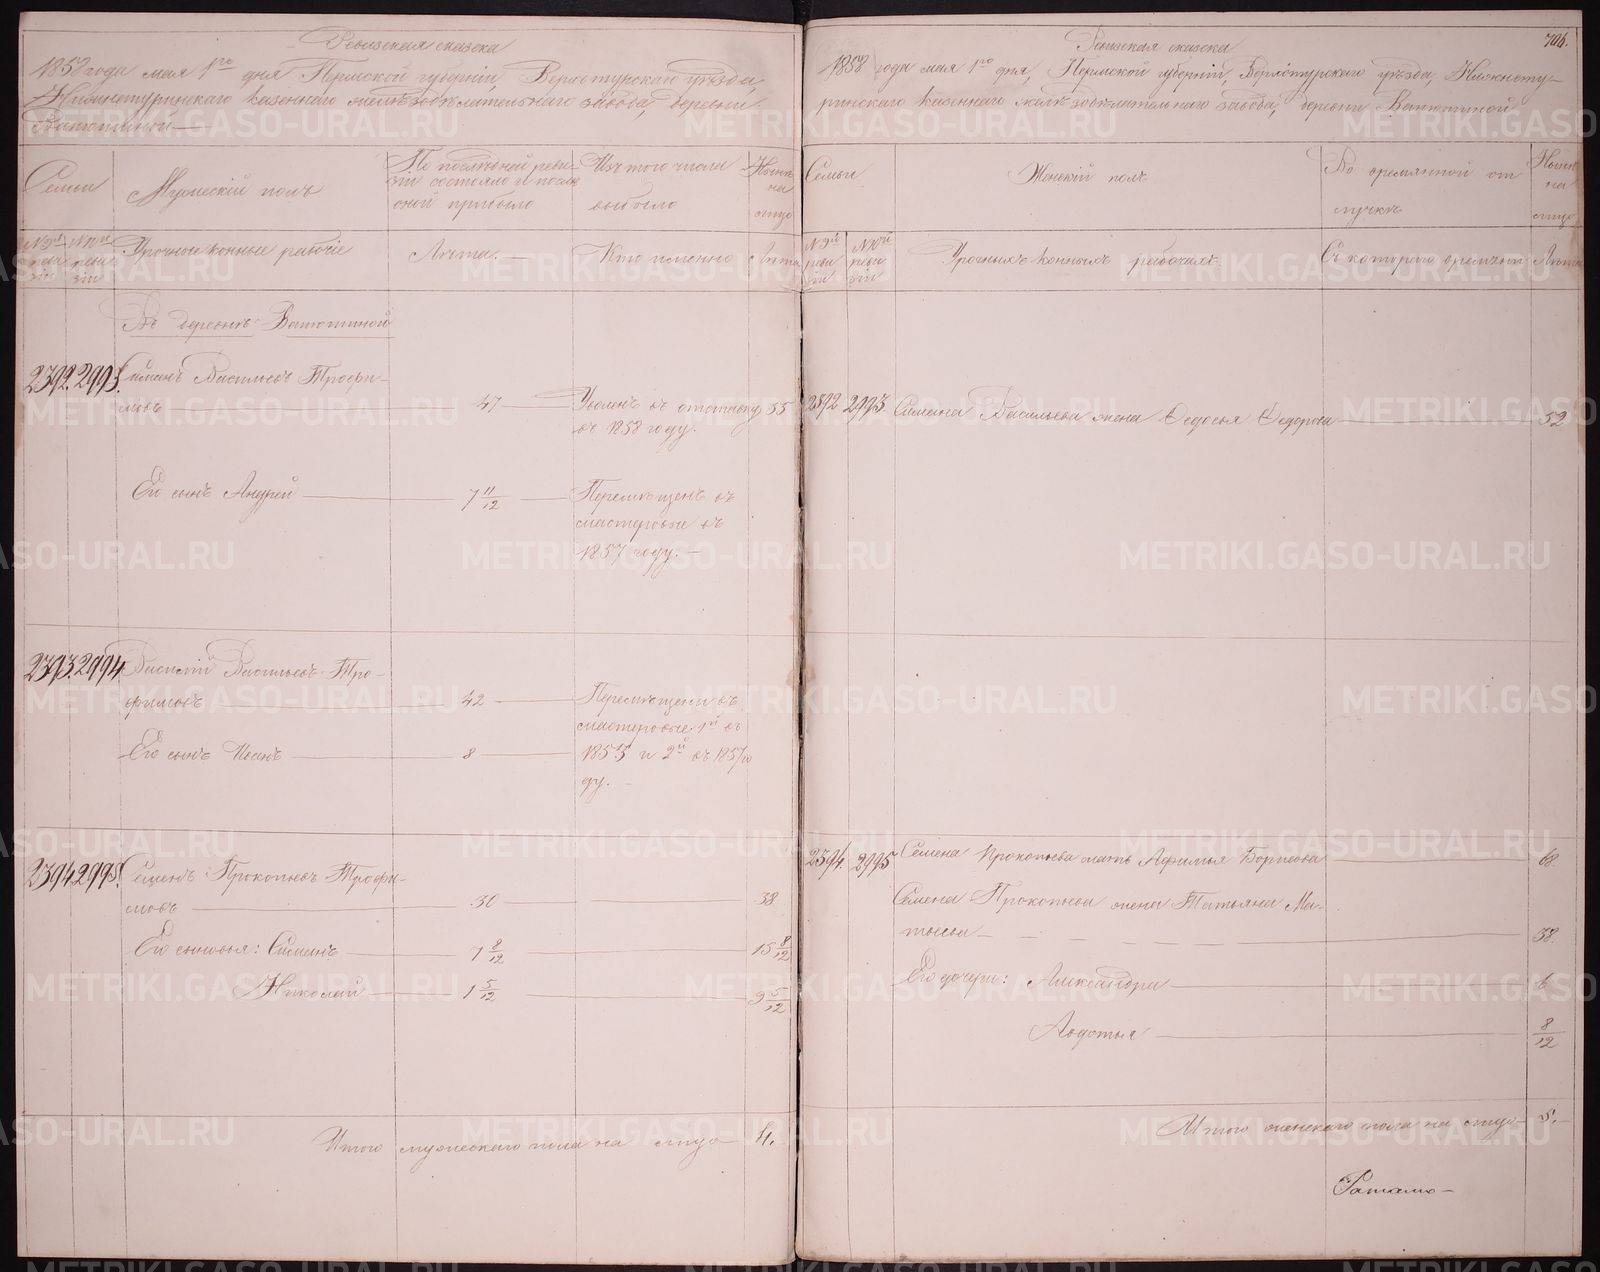 Ревизская сказка
1858 года мая 1го дня Пермской губернiи, Верхотурскаго уѣзда,
Нижнетуринскаго казеннаго желѣзодѣлательнаго завода, деревни
Ватютиной
Семьи
Мужескiй полъ
По послѣдней реви-
зiи состояло и после
оной прибыло
Изъ того числа
выбыло
Нынѣ
на
лицо
№ 9й
реви
зiи
№ 10й
реви
зiи
Урочные конные рабочiе
Лѣта.
Кто именно
Лѣта
Въ деревнѣ Ватютиной
2392. 2993. Симанъ Васильевъ Трофи-
мовъ 47 Уволенъ въ отставку 55
въ 1858 году.
Его сынъ Андрей 7 11/12 Перемѣщенъ въ
мастеровые въ
1857 году.
2393. 2994 Василiй Васильевъ Тро-
фимовъ 42 Перемѣщены въ
мастеровые 1й въ
Его сынъ Иванъ 8 1855 и 2й въ 1857 го
ду.
2394 2995. Семенъ Прокопьевъ Трофи-
мовъ 30 38
Его сыновья: Симанъ 7 8/12 15 8/12
Николай 1 5/12 9 5/12
Итого мужескаго пола на лицо 4.
706.
Ревизская сказка
1858 года мая 1го дня, Пермской губернiи, Верхотурскаго уѣзда, Нижнету-
ринскаго казеннаго желѣзодѣлательнаго завода, деревни Ватютиной
Семьи
Женскiй полъ
Во временной от
лучкѣ
Нынѣ
на
лицо
№ 9й
реви
зiи
№ 10й
реви
зiи
Урочныхъ конныхъ рабочихъ
Съ котораго времени
Лѣта
2392 2993 Симана Васильева жена Федосья Федорова 52
2394. 2995 Семена Прокопьева мать Афимья Борисова 68
Семена Прокопьева жена Татьяна Ма-
твеева 38.
Его дочери: Александра 6
Авдотья 8/12
Итого женскаго пола на лицо 5.
METRIKI.GASO-URAL.RU